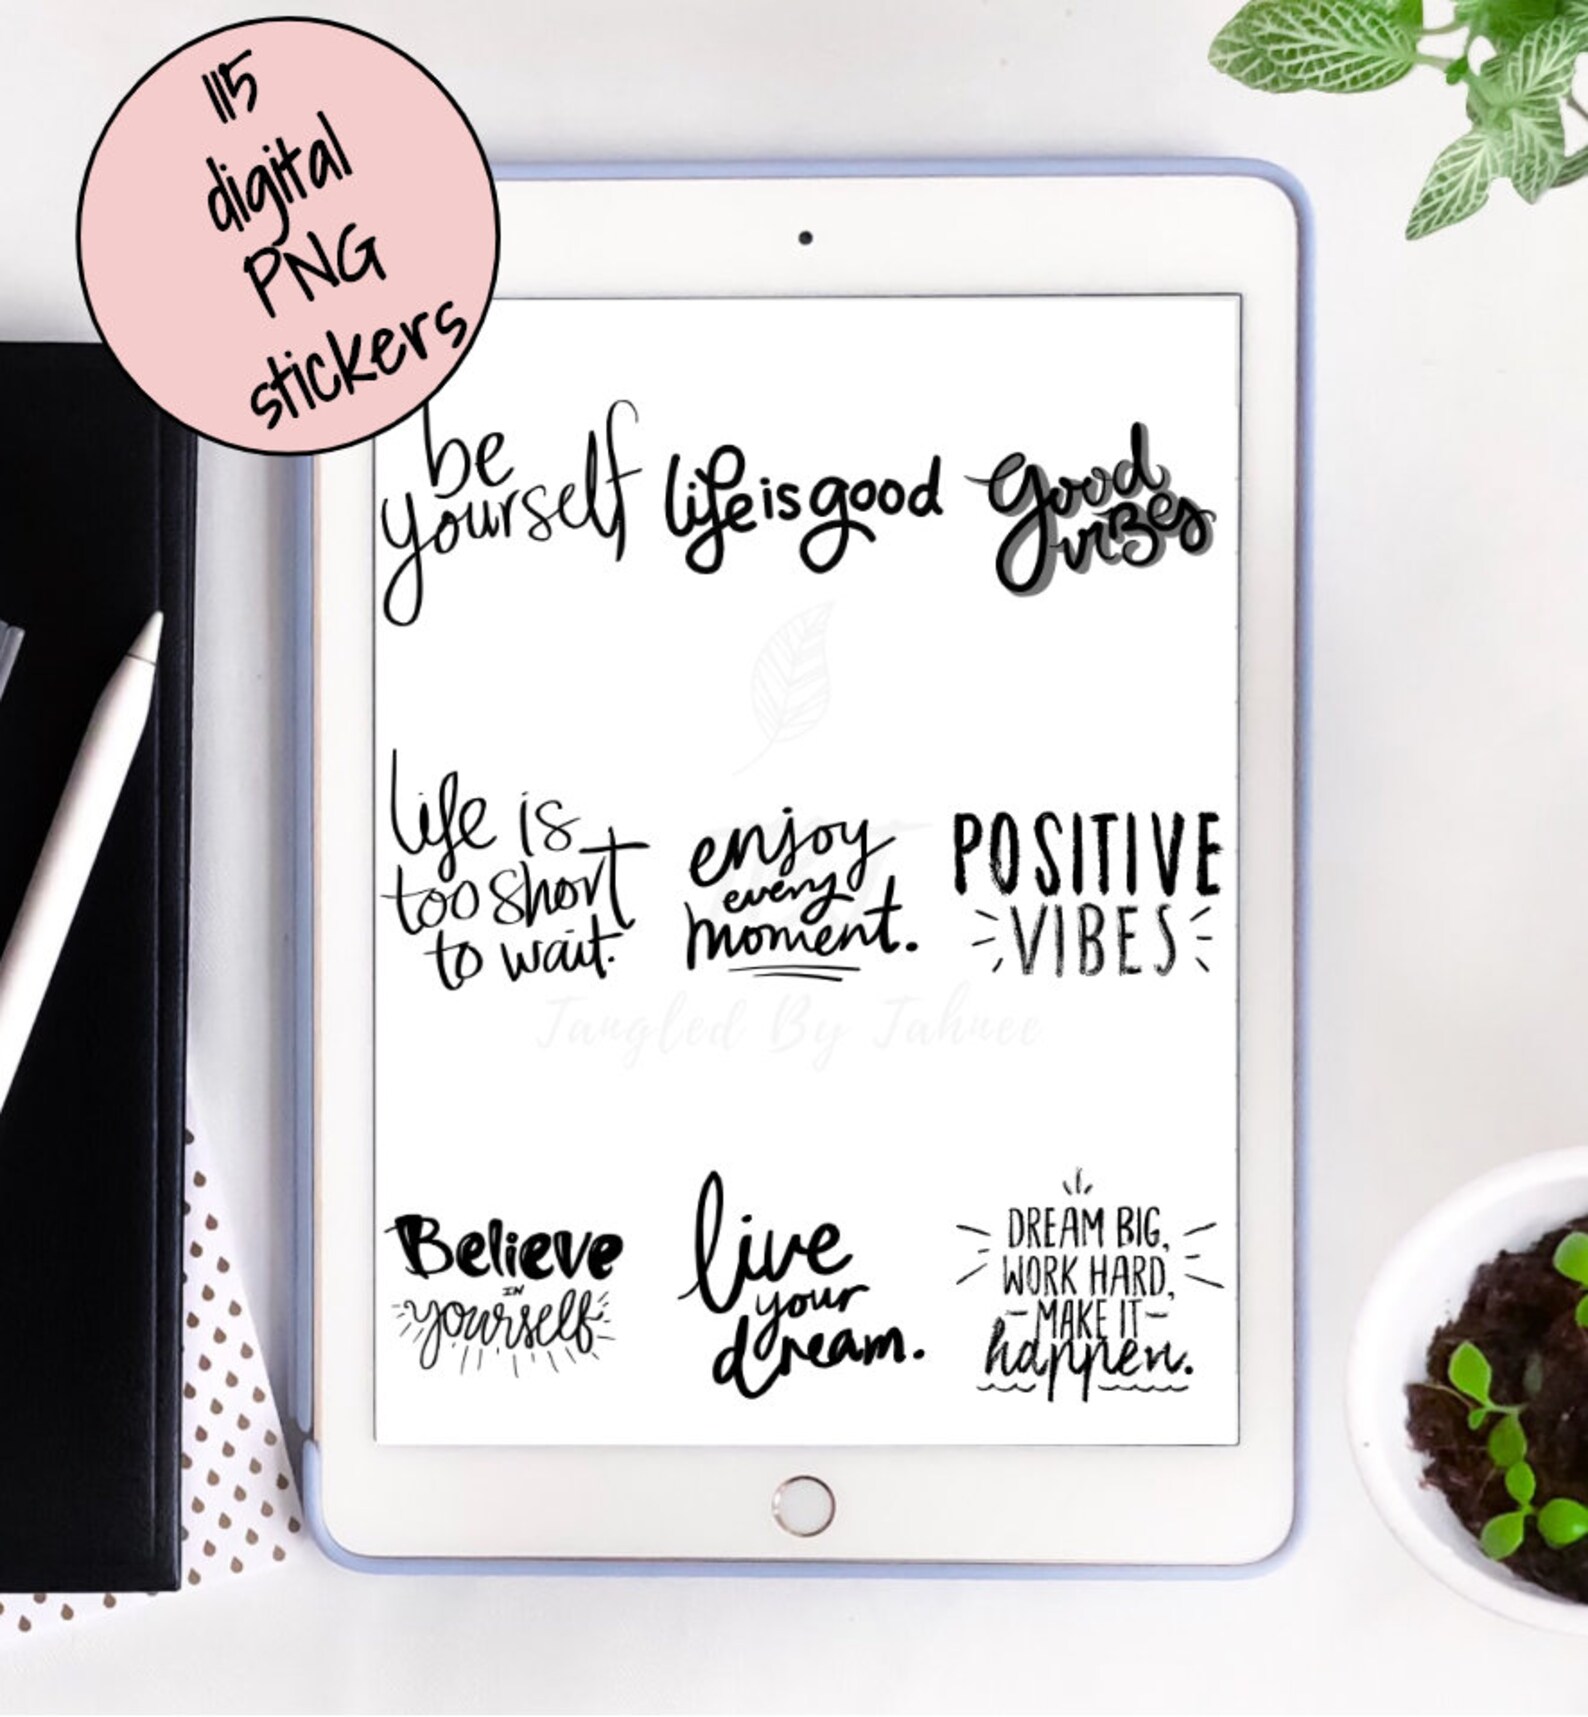 115
digital
PNG
stickers
be
yourself
life is good
Good
vibes
life is
too short
to wait.
enjoy
every
moment.
POSITIVE
VIBES
Tangled By Tahnee
Believe
IN
yourself
live
your
dream.
DREAM BIG,
WORK HARD,
MAKE IT
happen.